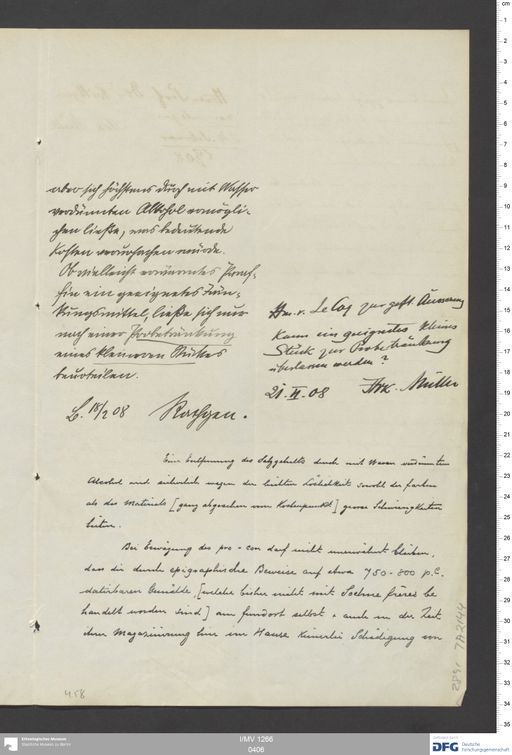 aber sich höchstens durch mit Wasser
verdünnten Alkohol ermögli-
chen ließe, was bedeutende
Kosten verursachen würde.
Ob vielleicht erwärmtes Paraf-
fin ein geeignetes Trän-
kungsmittel, ließe sich nur
nach einer Probetränkung
eines kleineren Stückes
beurteilen.
B. 18/2 08 Rathgen.
Hrn. v. LeCoq zur gefl. Äusserung
Kann ein geeignetes kleines
Stück zur Probetränkung
überlassen werden?
21.II.08 Müller
Eine Entfernung des Salzgehalts durch mit Wasser verdünnten
Alcohol wird sicherlich wegen der leichten Löslichkeit sowohl der Farben
als des Materials [ganz abgesehen vom Kostenpunkt] grosse Schwierigkeiten
bieten.
Bei Erwägung des pro - con darf nicht unerwähnt bleiben,
dass die durch epigraphische Beweise auf etwa 750-800 p.C.
datirbaren Gemälde, [welche bisher nicht mit Soehnée frères be
handelt worden sind] am Fundort selbst & auch in der Zeit
ihrer Magazinirung hier im Hause keinerlei Schädigung von
458
I/MV 1266
0406
Ethnologisches Museum
Staatliche Museen zu Berlin
DFG Deutsche
Forschungsgemeinschaft